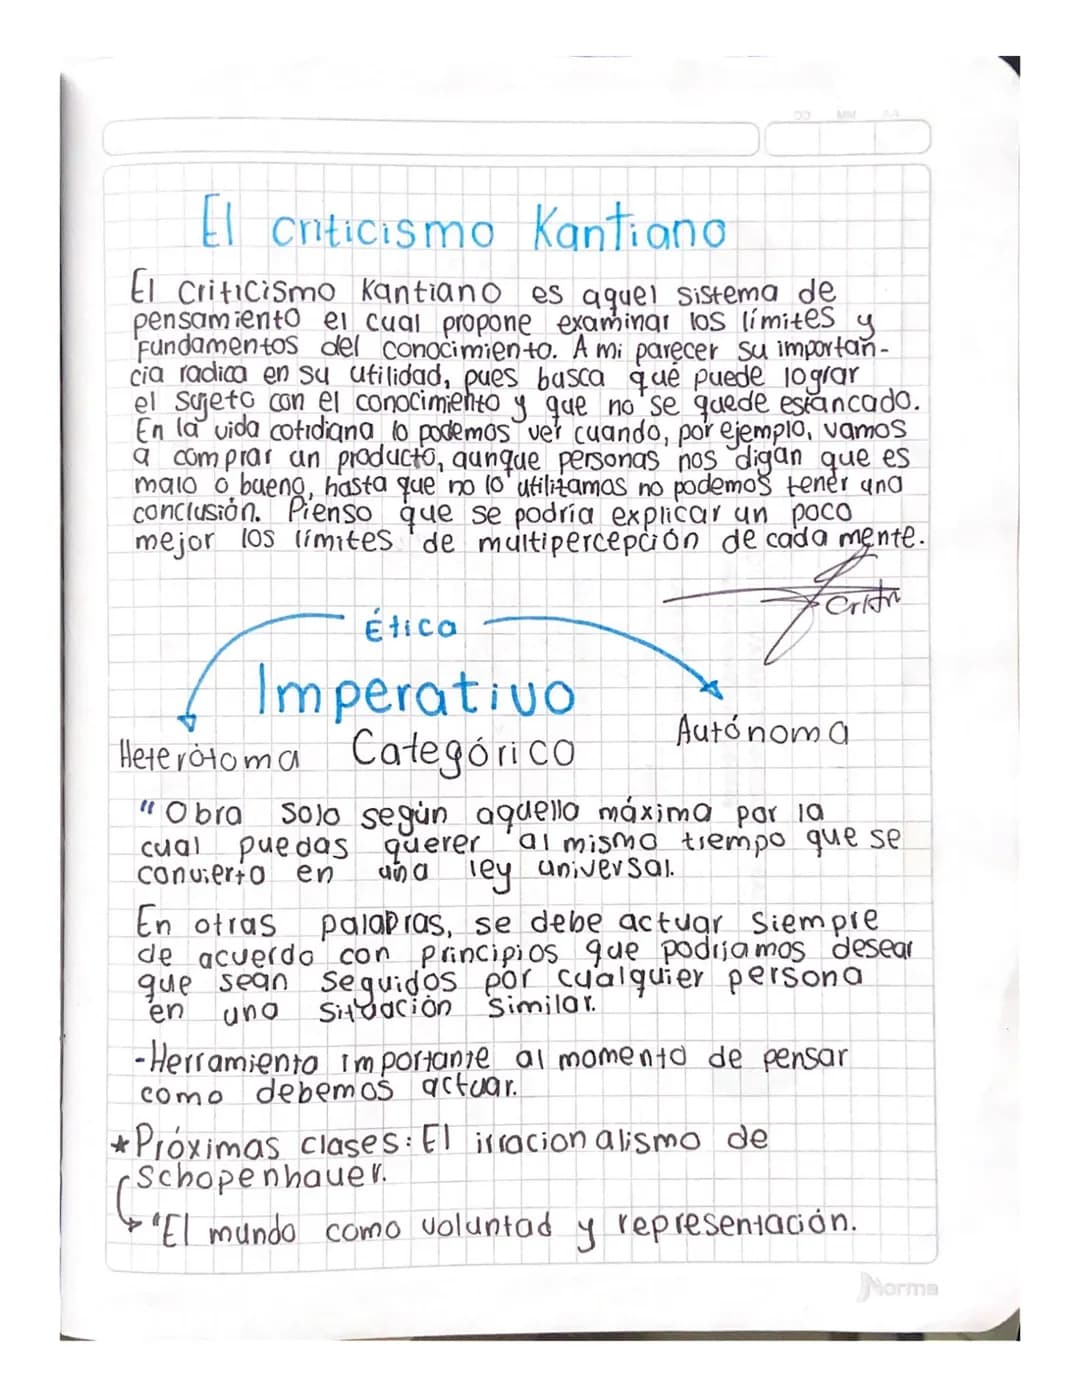 DD MM AA
El criticismo Kantiano
El criticismo Kantiano es aquel sistema de
pensamiento el cual propone examinar los límites y
fundamentos del conocimiento. A mi parecer su importan-
cia radica en su utilidad, pues busca qué puede lograr
el sujeto con el conocimiento y que no se quede estancado.
En la vida cotidiana lo podemos ver cuando, por ejemplo, vamos
a comprar un producto, aunque personas nos digan que es
malo o bueno, hasta que no lo utilizamos no podemos tener una
conclusión. Pienso que se podría explicar un poco
mejor los límites de multipercepción de cada mente.
Ética
Imperativo
Heterótoma Categórico Autónoma
"Obra solo según aquello máxima por la
cual puedas querer al mismo tiempo que se
convierta en una ley universal.
En otras palabras, se debe actuar siempre
de acuerdo con principios que podríamos desear
que sean seguidos por cualquier persona
en una situación similar.
-Herramienta importante al momento de pensar
como debemos actuar.
*Próximas clases: El irracionalismo de
Schopenhauer.
"El mundo como voluntad y representación.
Norma